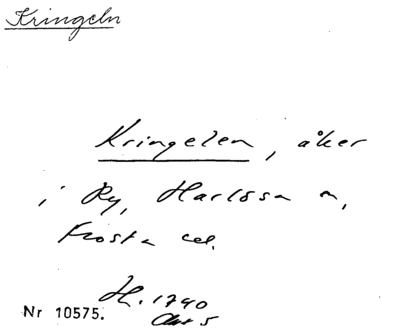 Kringeln
Kringelen, åker
i Ry, Harlösa sn,
Frosta hd.
H. 1740
Akt 5
Nr 10575.